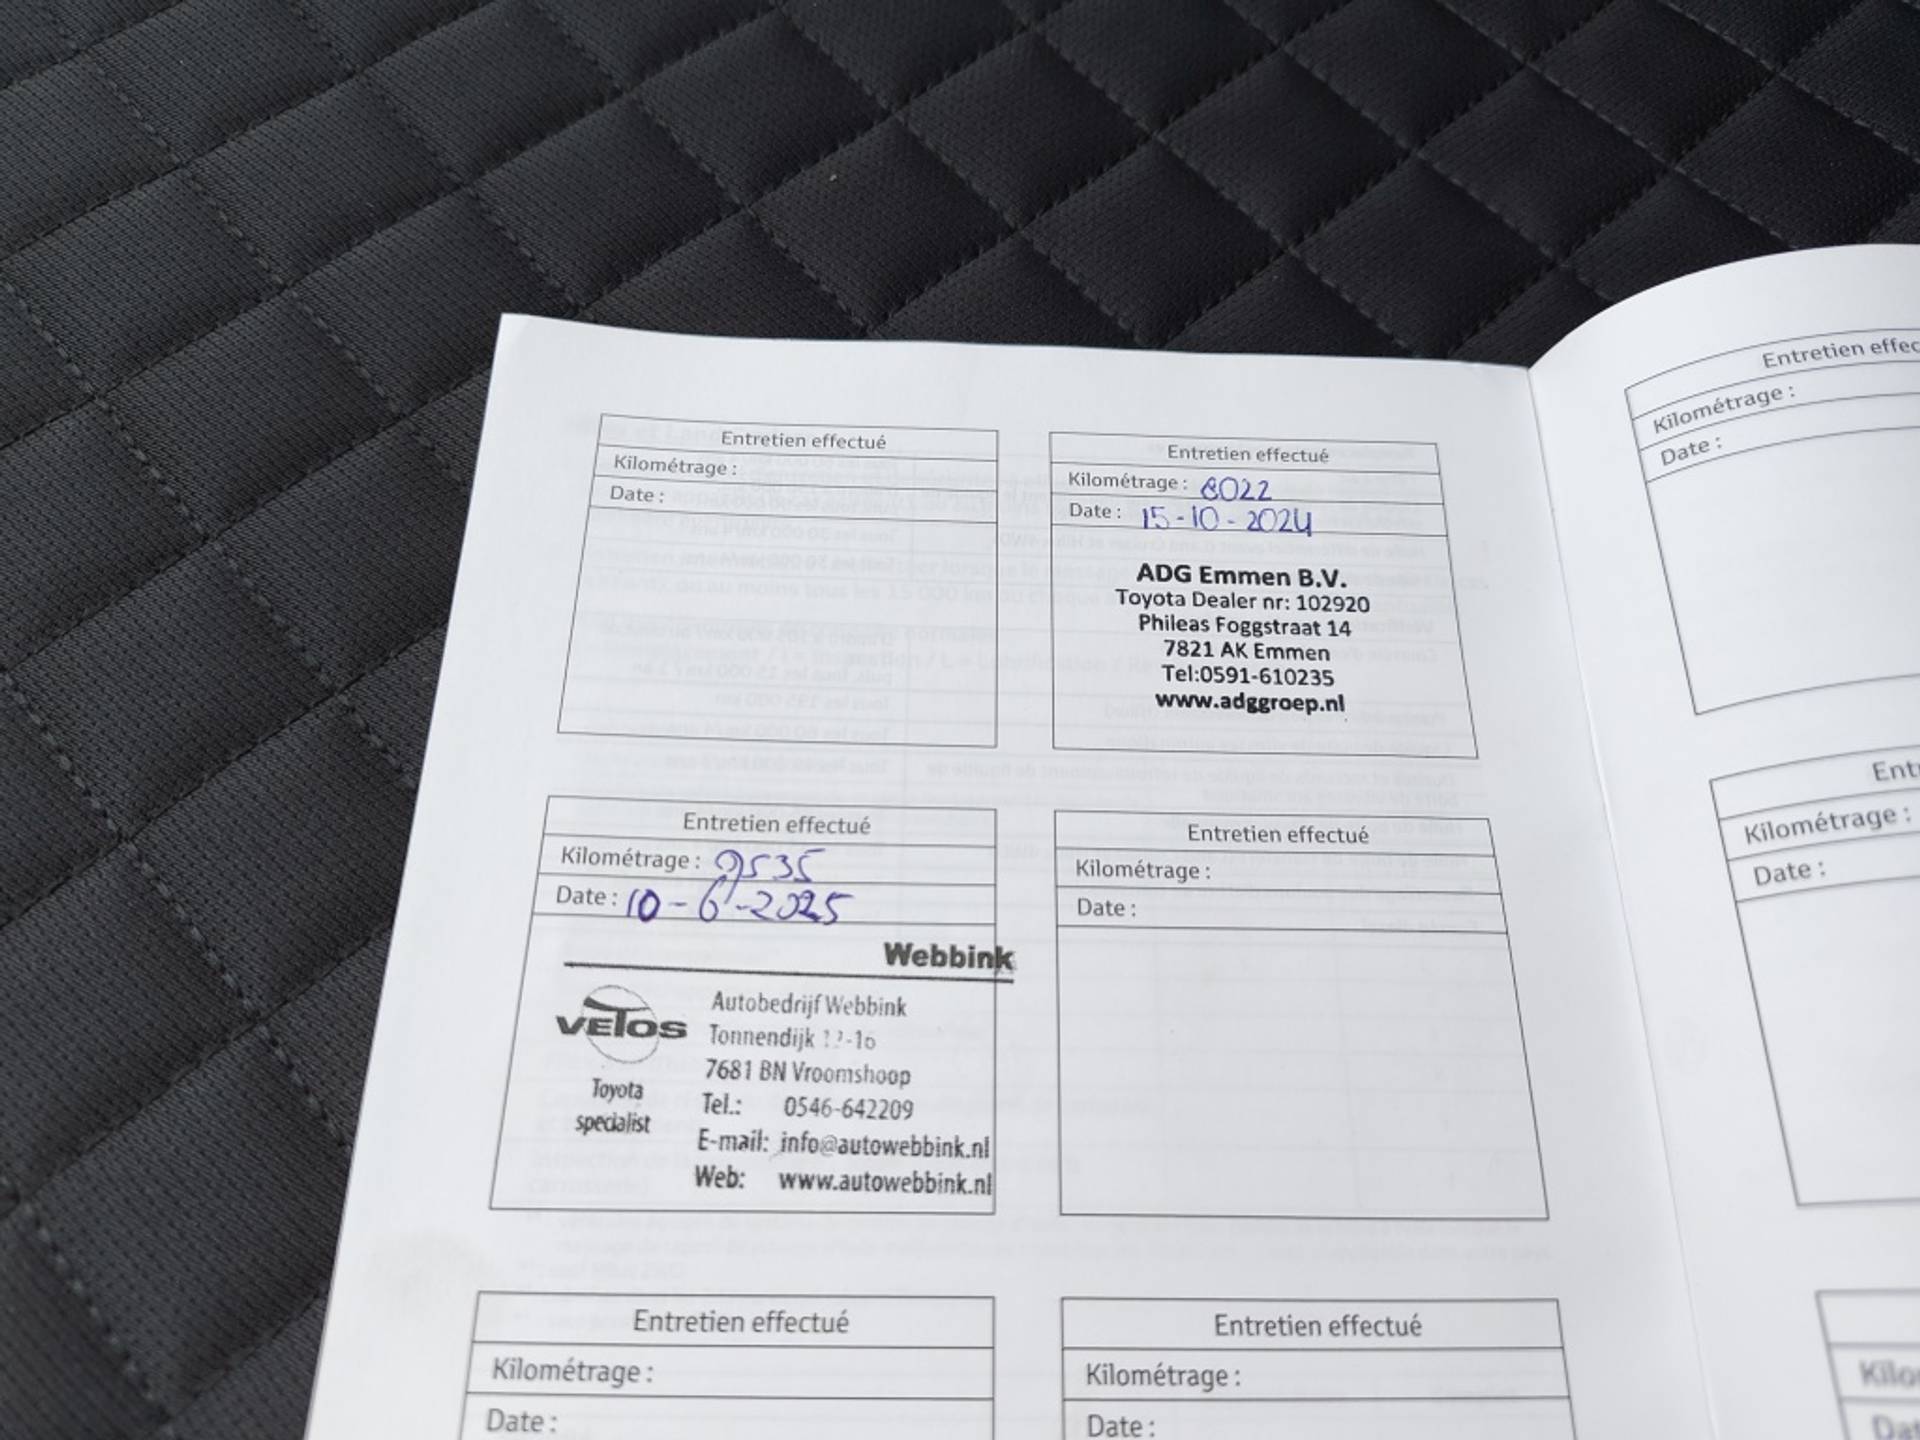 Entretien effectué
Kilométrage :
Date :
Entretien effectué
Kilométrage : 8022
Date : 15-10-2024
ADG Emmen B.V.
Toyota Dealer nr: 102920
Phileas Foggstraat 14
7821 AK Emmen
Tel:0591-610235
www.adggroep.nl
Entretien effectué
Kilométrage : 9535
Date : 10-6-2025
Webbink
VETOS
Toyota
specialist
Autobedrijf Webbink
Tonnendijk
7681 BN Vroomshoop
Tel.: 0546-642209
E-mail: info@autowebbink.nl
Web: www.autowebbink.nl
Entretien effectué
Kilométrage :
Date :
Entretien effectué
Kilométrage :
Date :
Entretien effectué
Kilométrage :
Date :
Entretien effec
Kilométrage :
Date :
Ent
Kilométrage :
Date :
Kilo
Dat